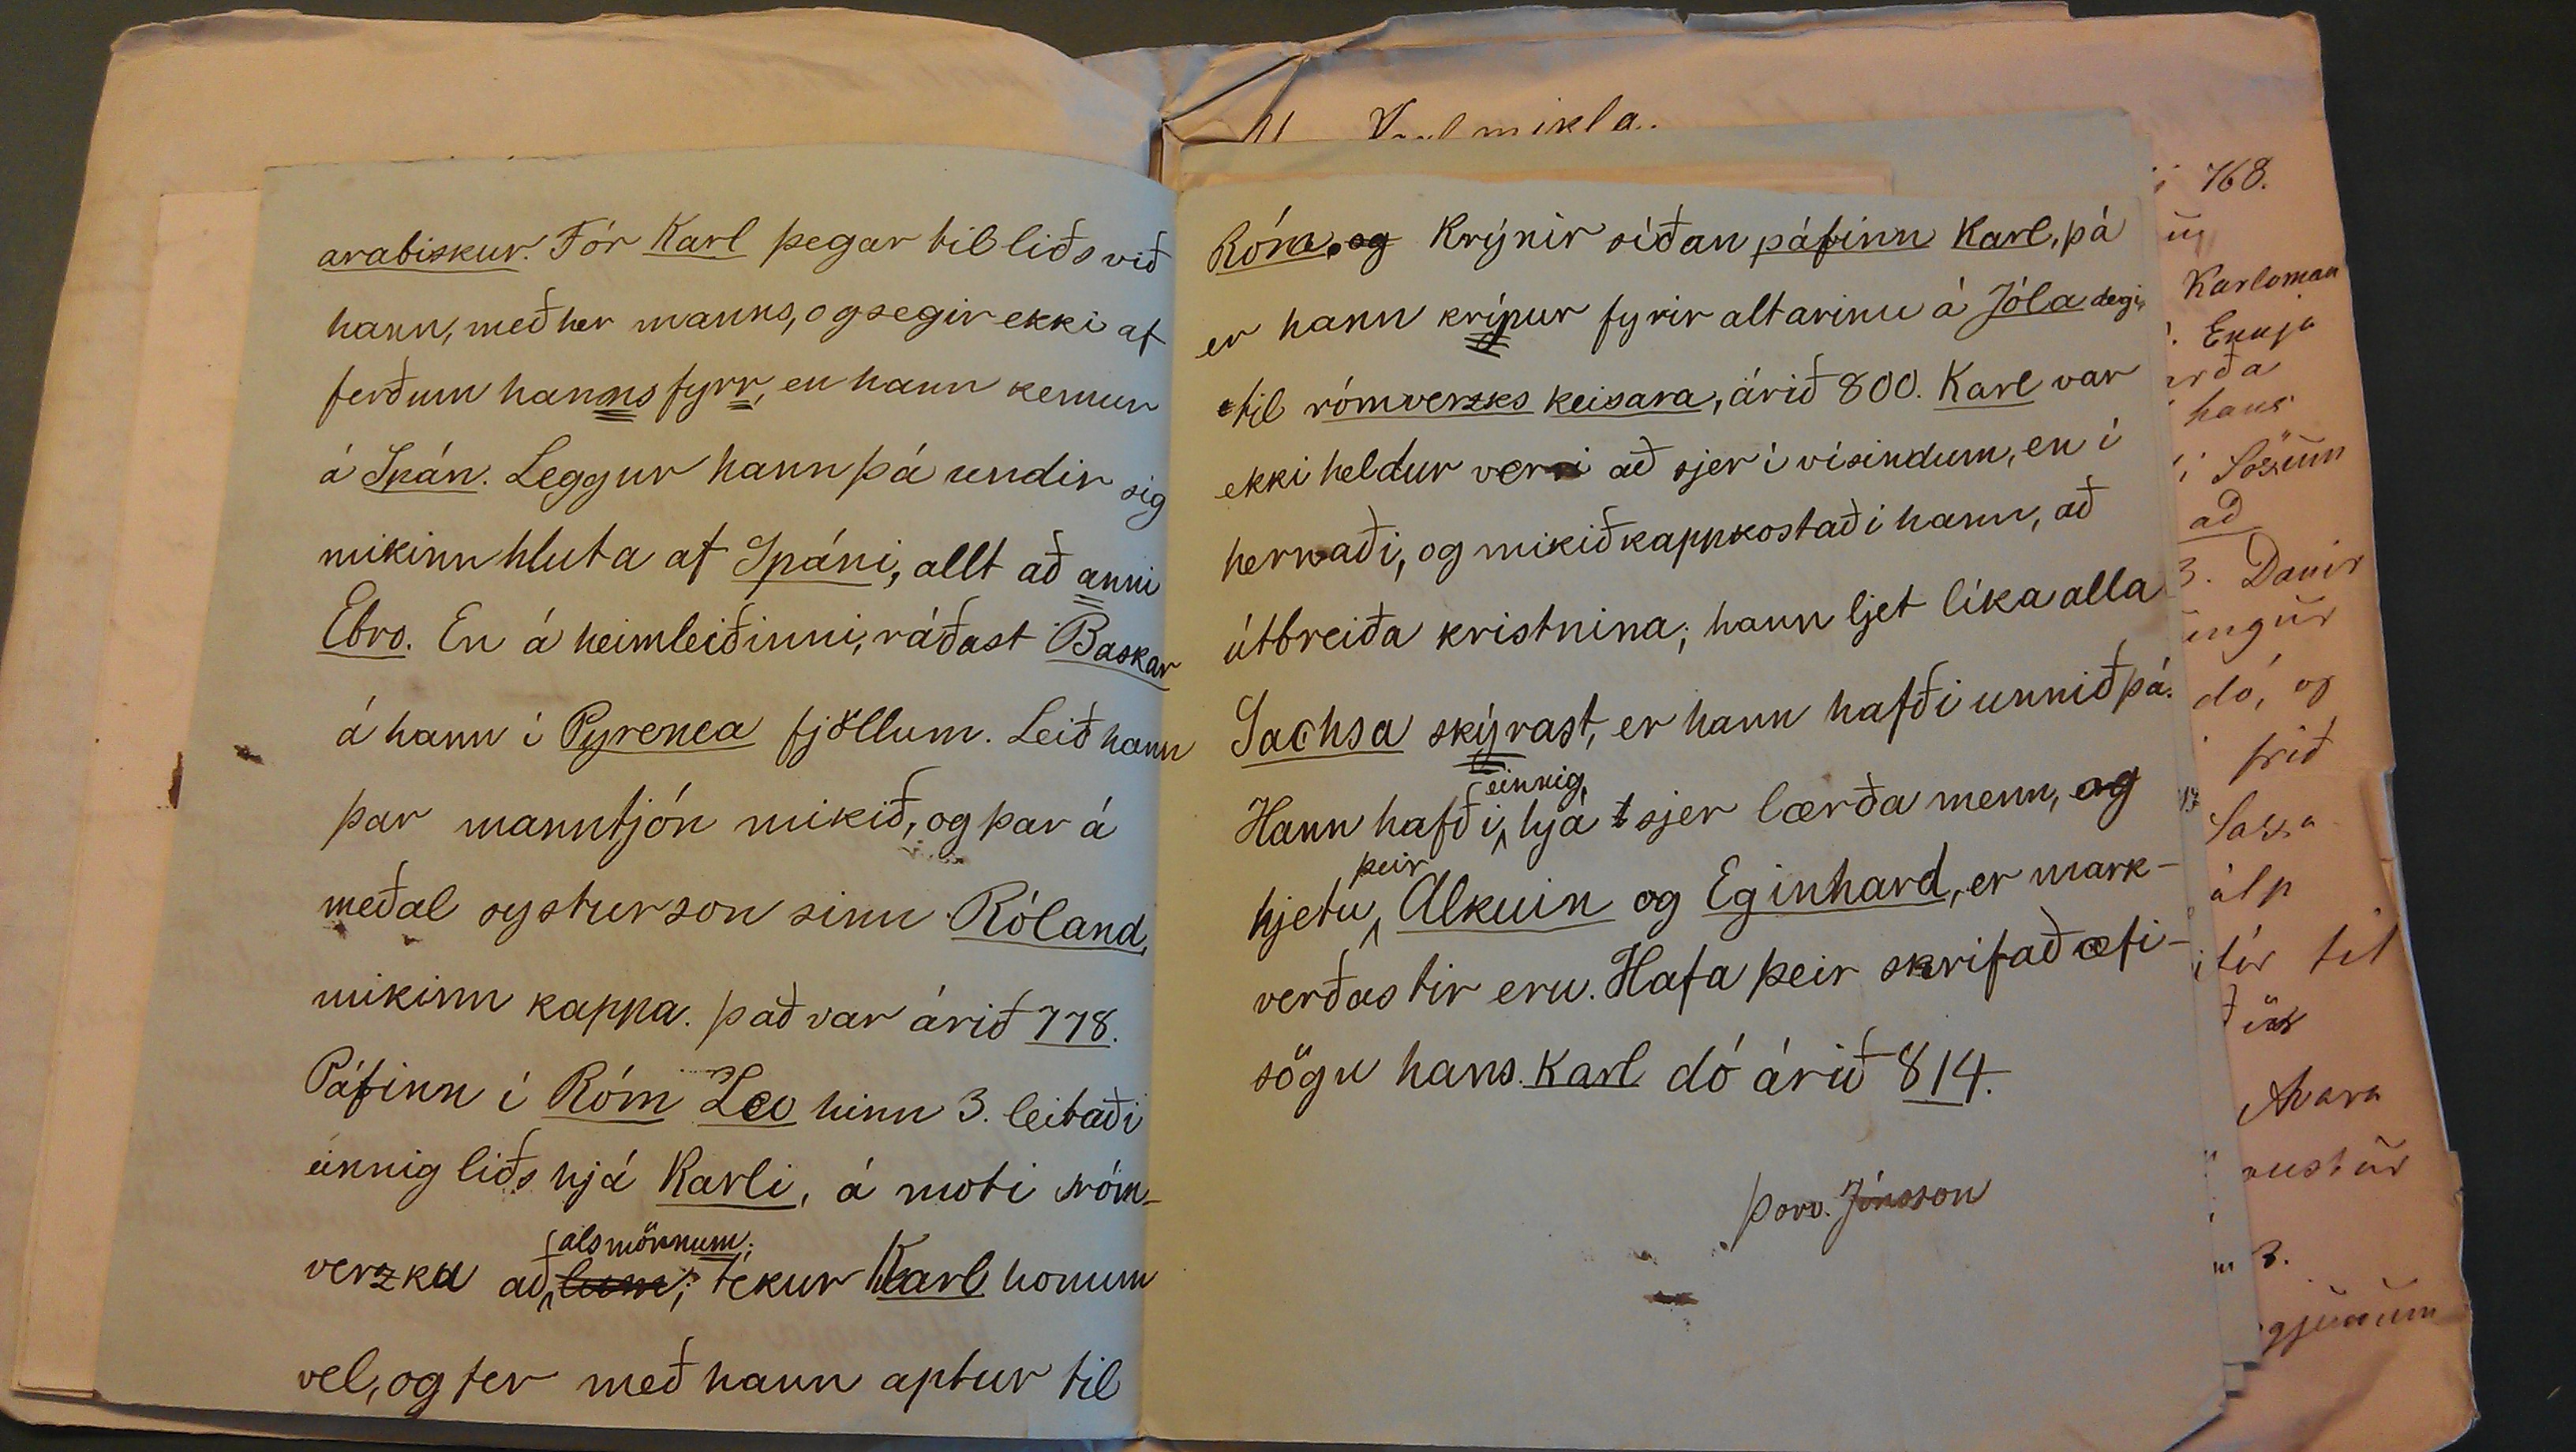 arabiskur. Fór Karl þegar til liðs við
hann, með her manns, og segir ekki af
ferðum hanns fyrr, en hann kemur
á Spán. Leggur hann þá undir sig
mikinn hluta af Spáni, allt að anni
Ebro. En á heimleiðinni, ráðast Baskar
á hann í Pyrenea fjöllum. Leið hann
þar manntjón mikið, og þar á
meðal systurson sinn Róland,
mikinn kappa. það var árið 778.
Páfinn í Róm Leo hinn 3. leitaði
einnig liðs hjá Karli, á moti róm-
alsmönnum;
verzku að tekur Karl honum
vel, og fer með hann aptur til
Róm. og Krýnir síðan páfinn Karl, þá
er hann krýpur fyrir altarinu á Jóladegi,
til rómverzks keisara, árið 800. Karl var
ekki heldur verri að sjer í vísindum, en í
hernaði, og mikið kappkostaði hann, að
útbreiða kristnina; hann ljet líka alla
Sachsa skýrast, er hann hafði unnið þá.
einnig,
Hann hafði hjá sjer lærða menn, og
þeir
hjetu Alkuin og Eginhard, er mark-
verðastir eru. Hafa þeir skrifað æfi-
sögu hans. Karl dó árið 814.
Þorv. Jónsson
mikla.
768.
Karloman
Sössum
að
3. Danir
dó, og
frið
til
Avara
3.